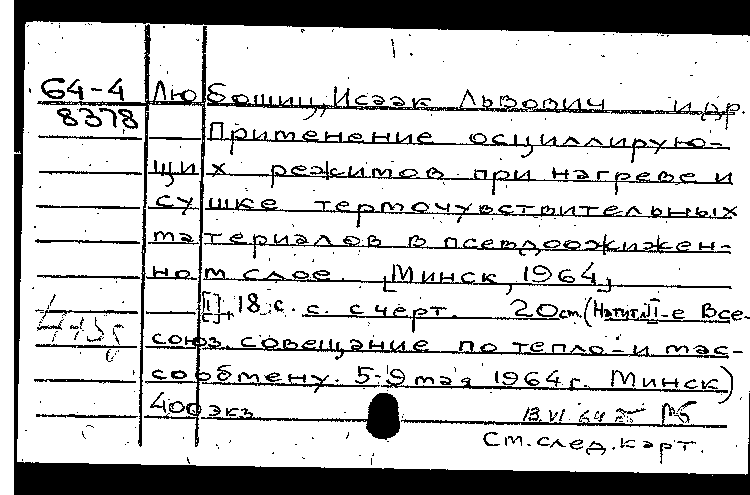 64-4 Любошиц, Исаак Львович и др.
8378 Применение осциллирую-
щих режимов при нагреве и
сушке термочувствительных
материалов в псевдоожижен-
ном слое. [Минск, 1964]
[1], 18 с. с черт. 20 см. (II-е Все-
союз. совещание по тепло- и мас-
сообмену. 5-9 мая 1964 г. Минск)
400 экз 13.VI.64
См. след. карт.